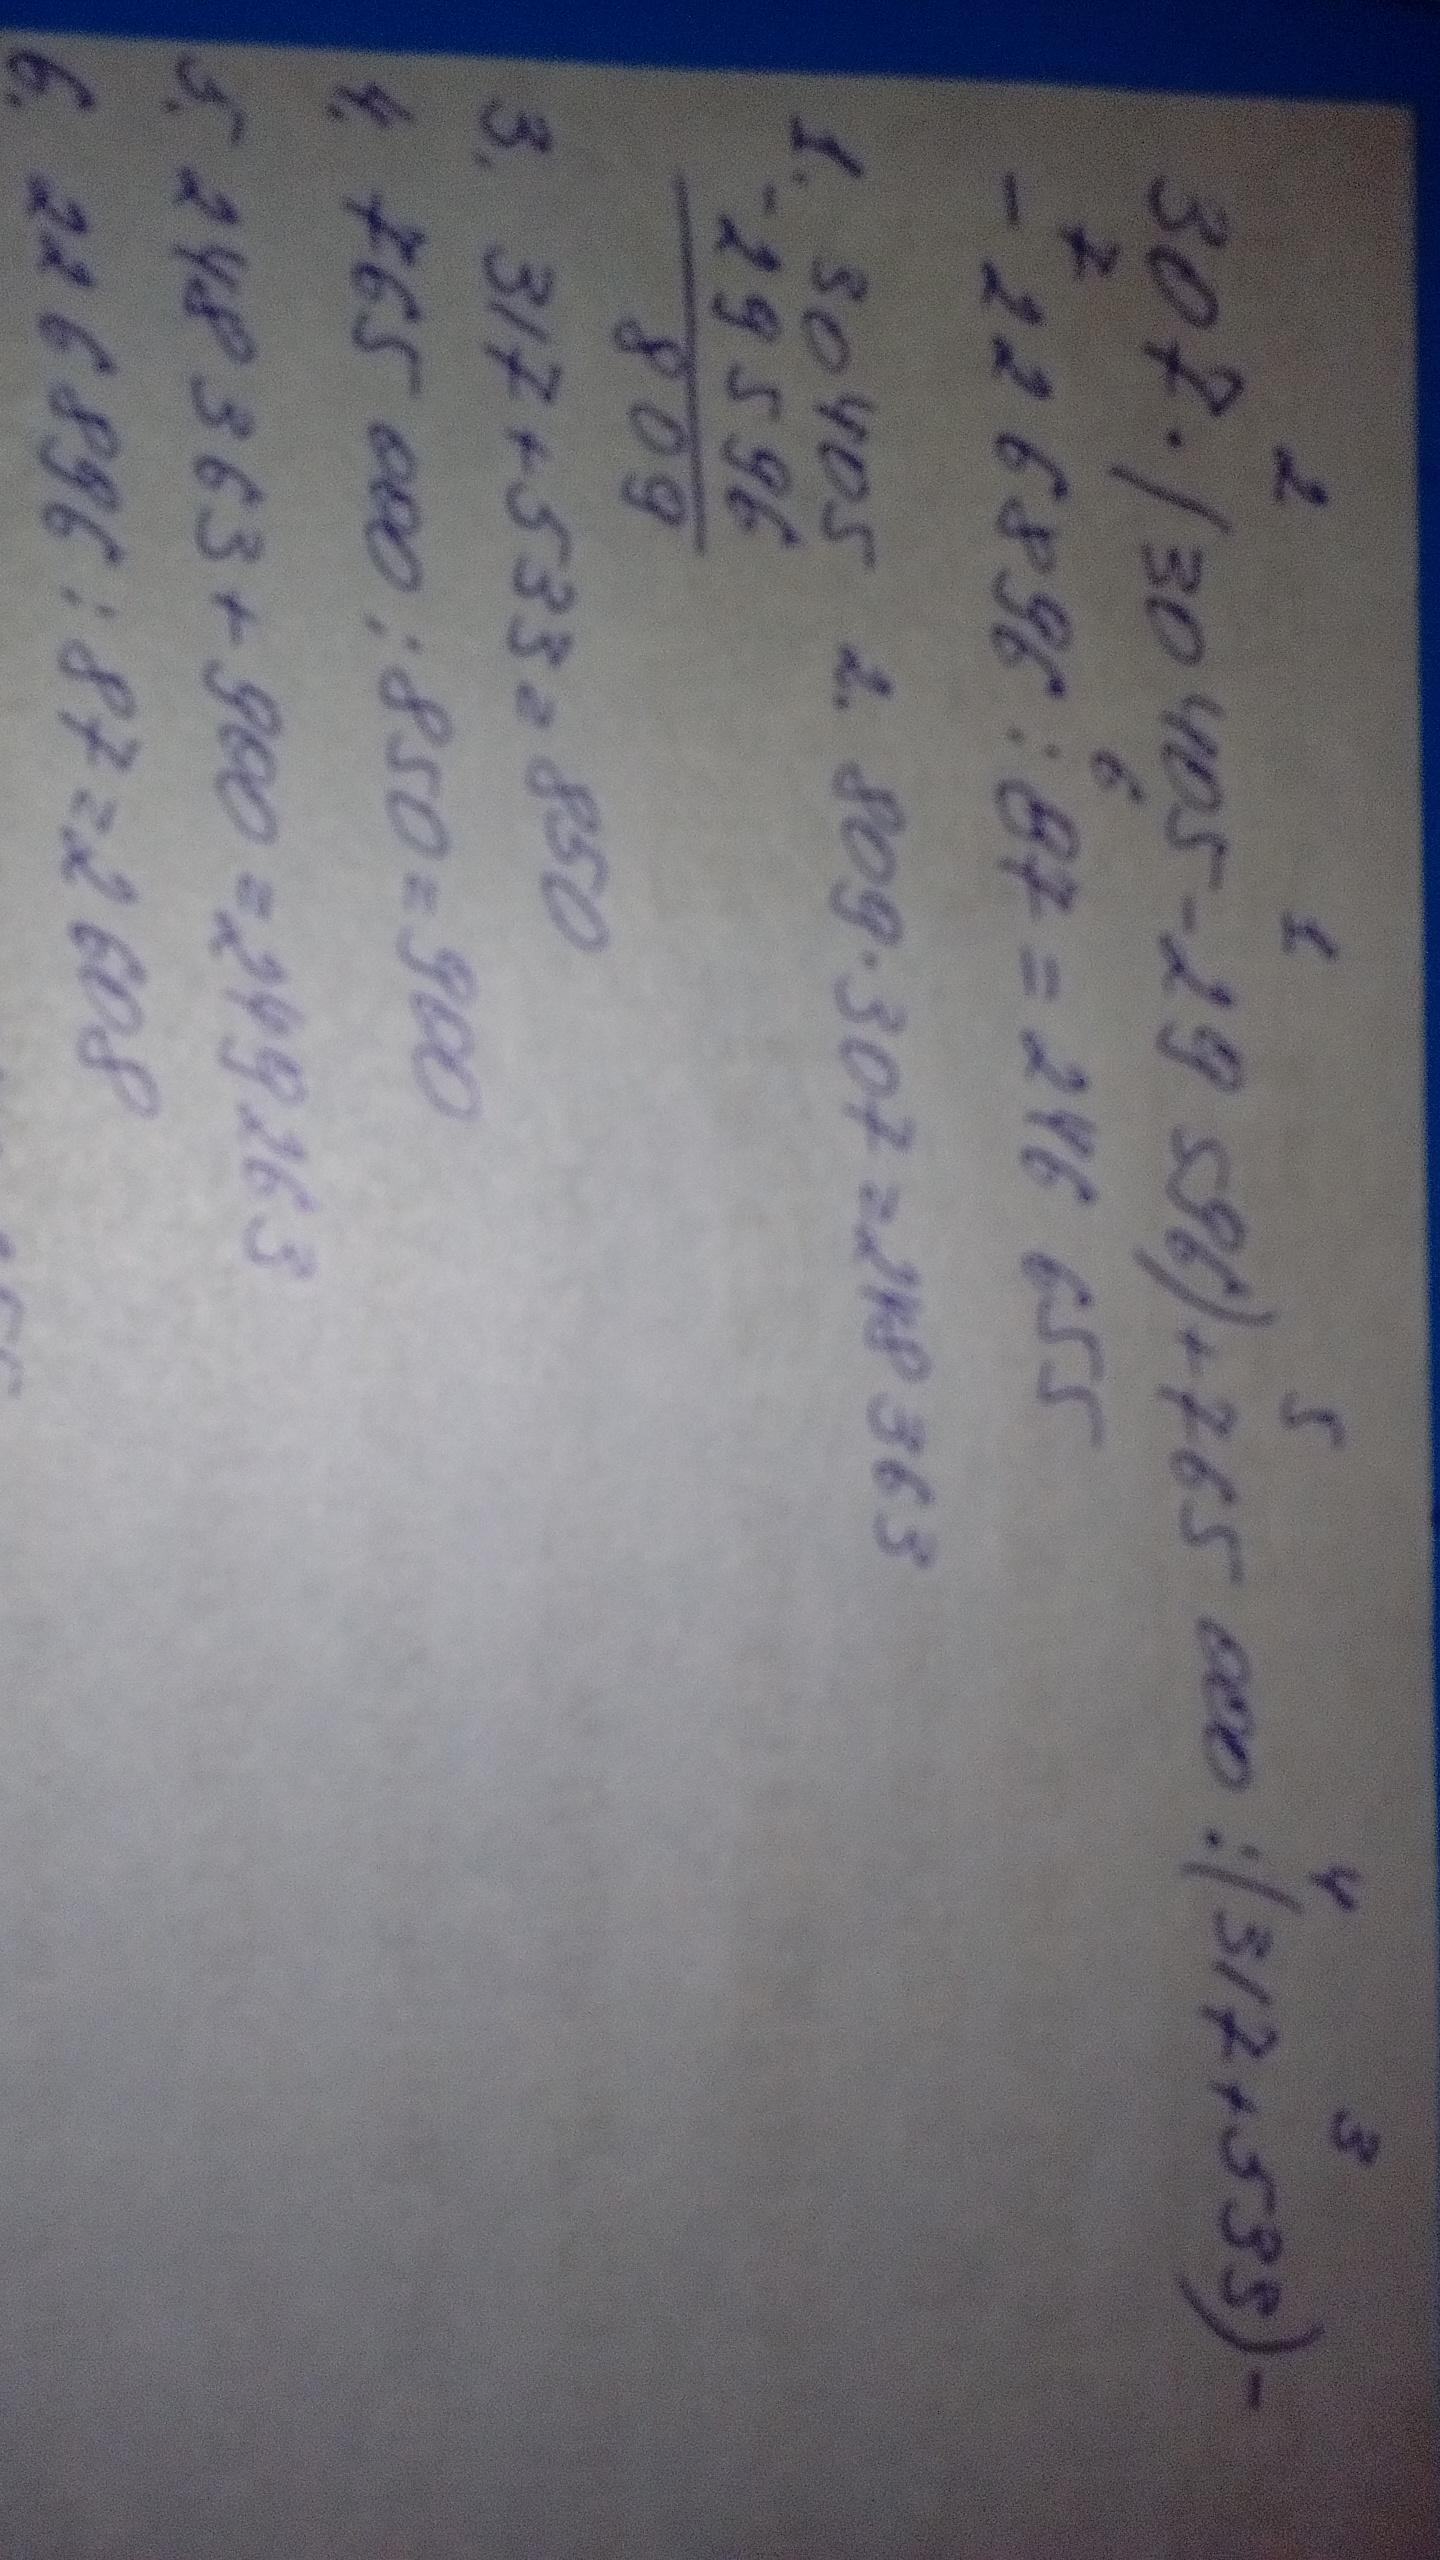 2 1 5 4 3
307·(30 405-29 596)+765 000:(317+533)-
7 6
-226896:87=246 655
1. 30405 2. 809·307=248363
-29596
809
3. 317+533=850
4. 765 000:850=900
5. 248363+900=249263
6. 226896:87=2608